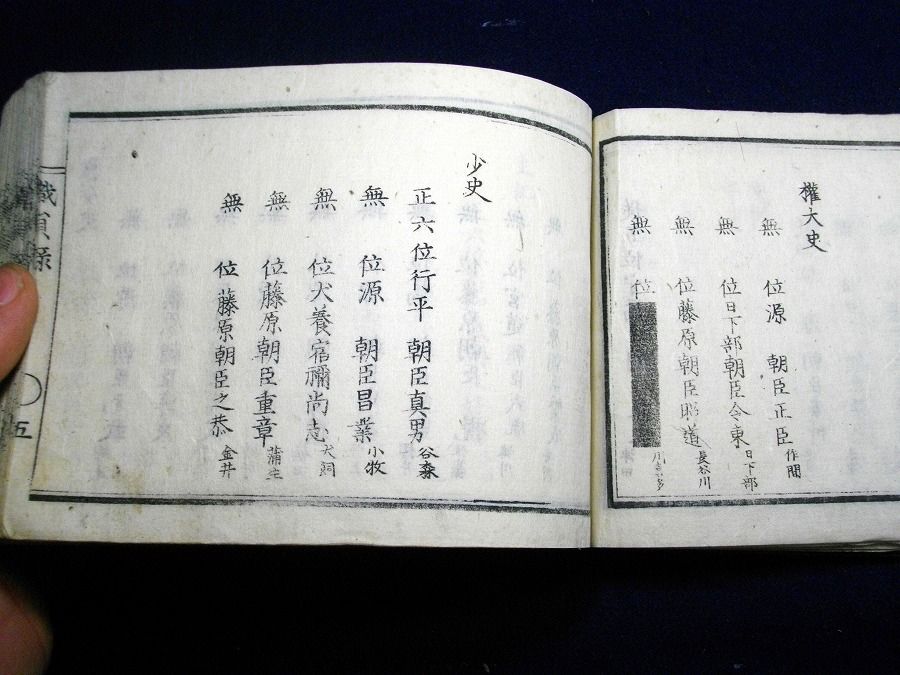 權大史
無位源朝臣正臣 作間
無位日下部朝臣令東 日下部
無位藤原朝臣昭道 長谷川
無位
少史
正六位行平朝臣真男 谷森
無位源朝臣昌業 小牧
無位犬養宿禰尚志 犬飼
無位藤原朝臣重章 蒲生
無位藤原朝臣之恭 金井
職員録
五